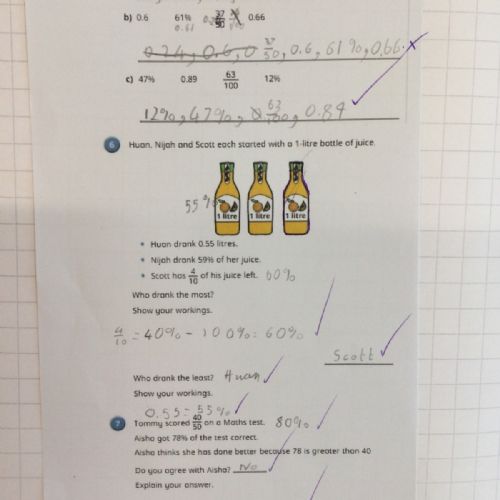 b) 0.6 61% 37/50 0.66
0.61
0.24, 0.6, 0 /50, 0.6, 61%, 0.66
c) 47% 0.89 63/100 12%
12%, 47%, 63/100, 0.89
6 Huan, Nijah and Scott each started with a 1-litre bottle of juice.
55%
1 litre 1 litre 1 litre
• Huan drank 0.55 litres.
• Nijah drank 59% of her juice.
• Scott has 4/10 of his juice left. 60%
Who drank the most?
Show your workings.
4/10 = 40% - 100% = 60%
Scott
Who drank the least? Huan
Show your workings.
0.55 = 55%
7 Tommy scored 40/50 on a Maths test. 80%
Aisha got 78% of the test correct.
Aisha thinks she has done better because 78 is greater than 40
Do you agree with Aisha? No
Explain your answer.